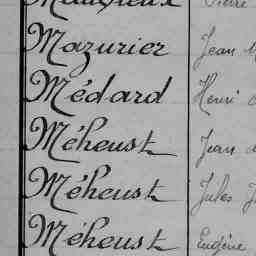 Mazurier Jean
Médard Henri
Méheust Jean
Méheust Jules
Méheust Eugène